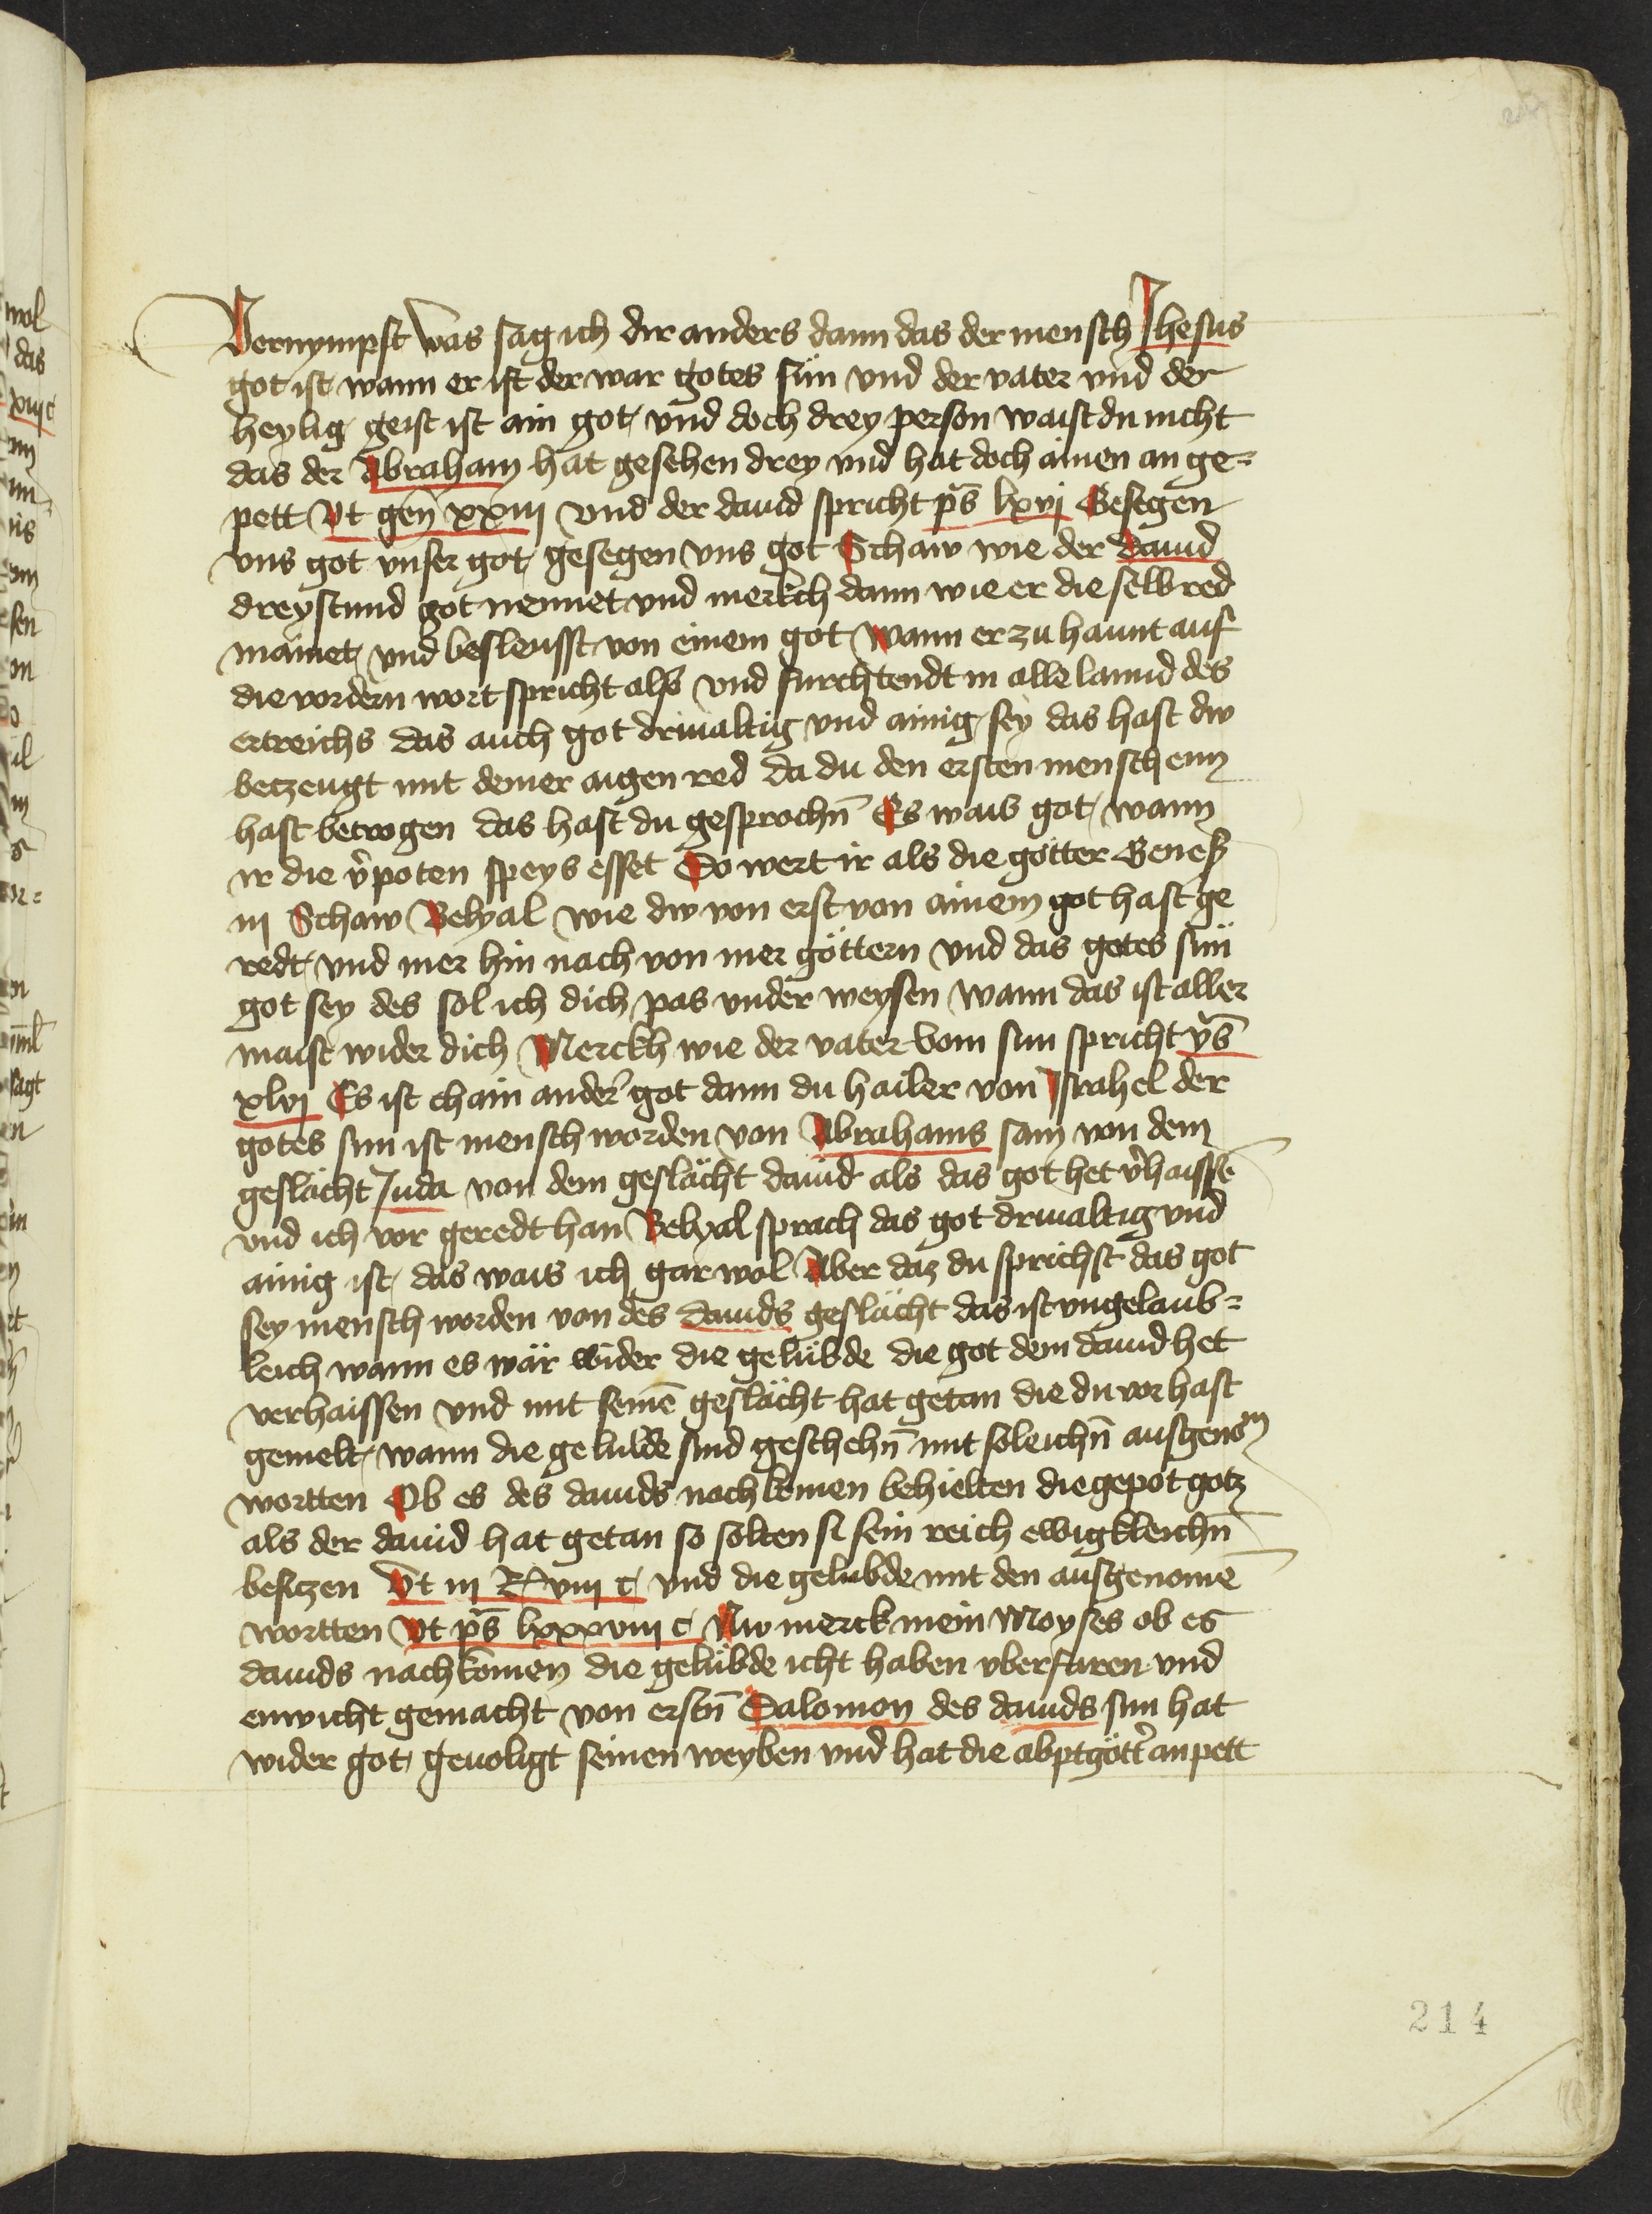 Vernympst was sag ich dir anders dann das der mensch Jhesus
got ist wann er ist der war gotes sün vnd der vater vnd der
heylig geist ist ain got vnd doch drey person waist du nicht
das der Abraham hat gesehen drey vnd hat doch ainen an ge=
pett Vt gen̄ xxiij vnd der dauid spricht ps̄ lxvj Gesegen
vns got vnser got gesegen vns got Schaw wie der dauid
dreystund got nennet vnd merkch dann wie er die selb red
mainet vnd beslewsst von einem got wann er zu haunt auf
die vordern wort spricht also vnd furchtendt in alle lannd des
ertreichs das auch got driualtig vnd ainig sey das hast dw
betzeugt mit deiner aigen red da du den ersten menschenn
hast betrogen das hast du gesprochn̄ Es wais got wann
ir die v̾poten speys esset So wert ir als die götter Genesy
iij Schaw Belyal wie dw von erst von ainem got hast ge
redt vnd mer hin nach von mer göttern vnd das gotes sün
got sey des sol ich dich pas vnder weysen wann das ist aller
maist wider dich Merckh wie der vater vom sun spricht ps̄
xlvj Es ist chain ander got dann du hailer von Israhel der
gotes sun ist mensch worden von Abrahams sam von dem
geslächt Juda von dem geslächt dauid als das got het v̾haissē
vnd ich vor geredt han Belyal sprach das got driualtig vnd
ainig ist das wais ich gar wol Aber daz du sprichst das got
sey mensch worden von des dauids geslächt das ist vngelaub=
leich wann es wär wider die gelübde die got dem dauid het
verhaissen vnd mit seinē geslächt hat getan die du vor hast
gemelt wann die gelubde sind geschehn̄ mit soleichn̄ ausgenom
wortten Ob es des dauids nachkomen behielten die gepot gotz
als der dauid hat getan so solten si sein reich ewigkleichn̄
besitzen Vt iij R viij c vnd die gelubde mit den ausgenomē
wortten Vt ps̄ lxxxviij c Nw merck mein Moyses ob es
dauids nachkomen die gelübde icht haben vberfaren vnd
enwicht gemacht von erstn̄ Salomon des dauids sun hat
wider got geuoligt seinen weyben vnd hat die abptgött̾ anpett
214